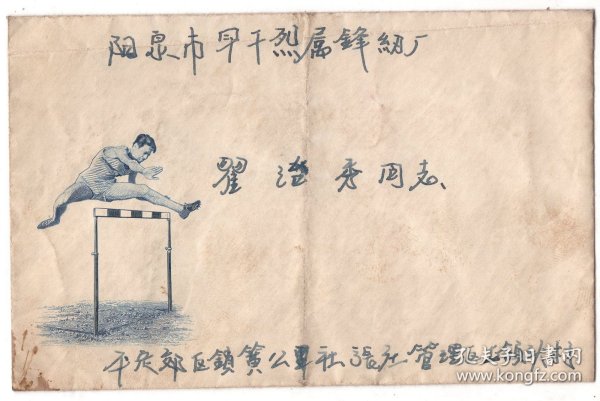 阳泉市军干烈属缝纫厂
翟 秀同志
平定郊区鎖簧公社張庄管理区
孔夫子旧书网
www.kongfz.com